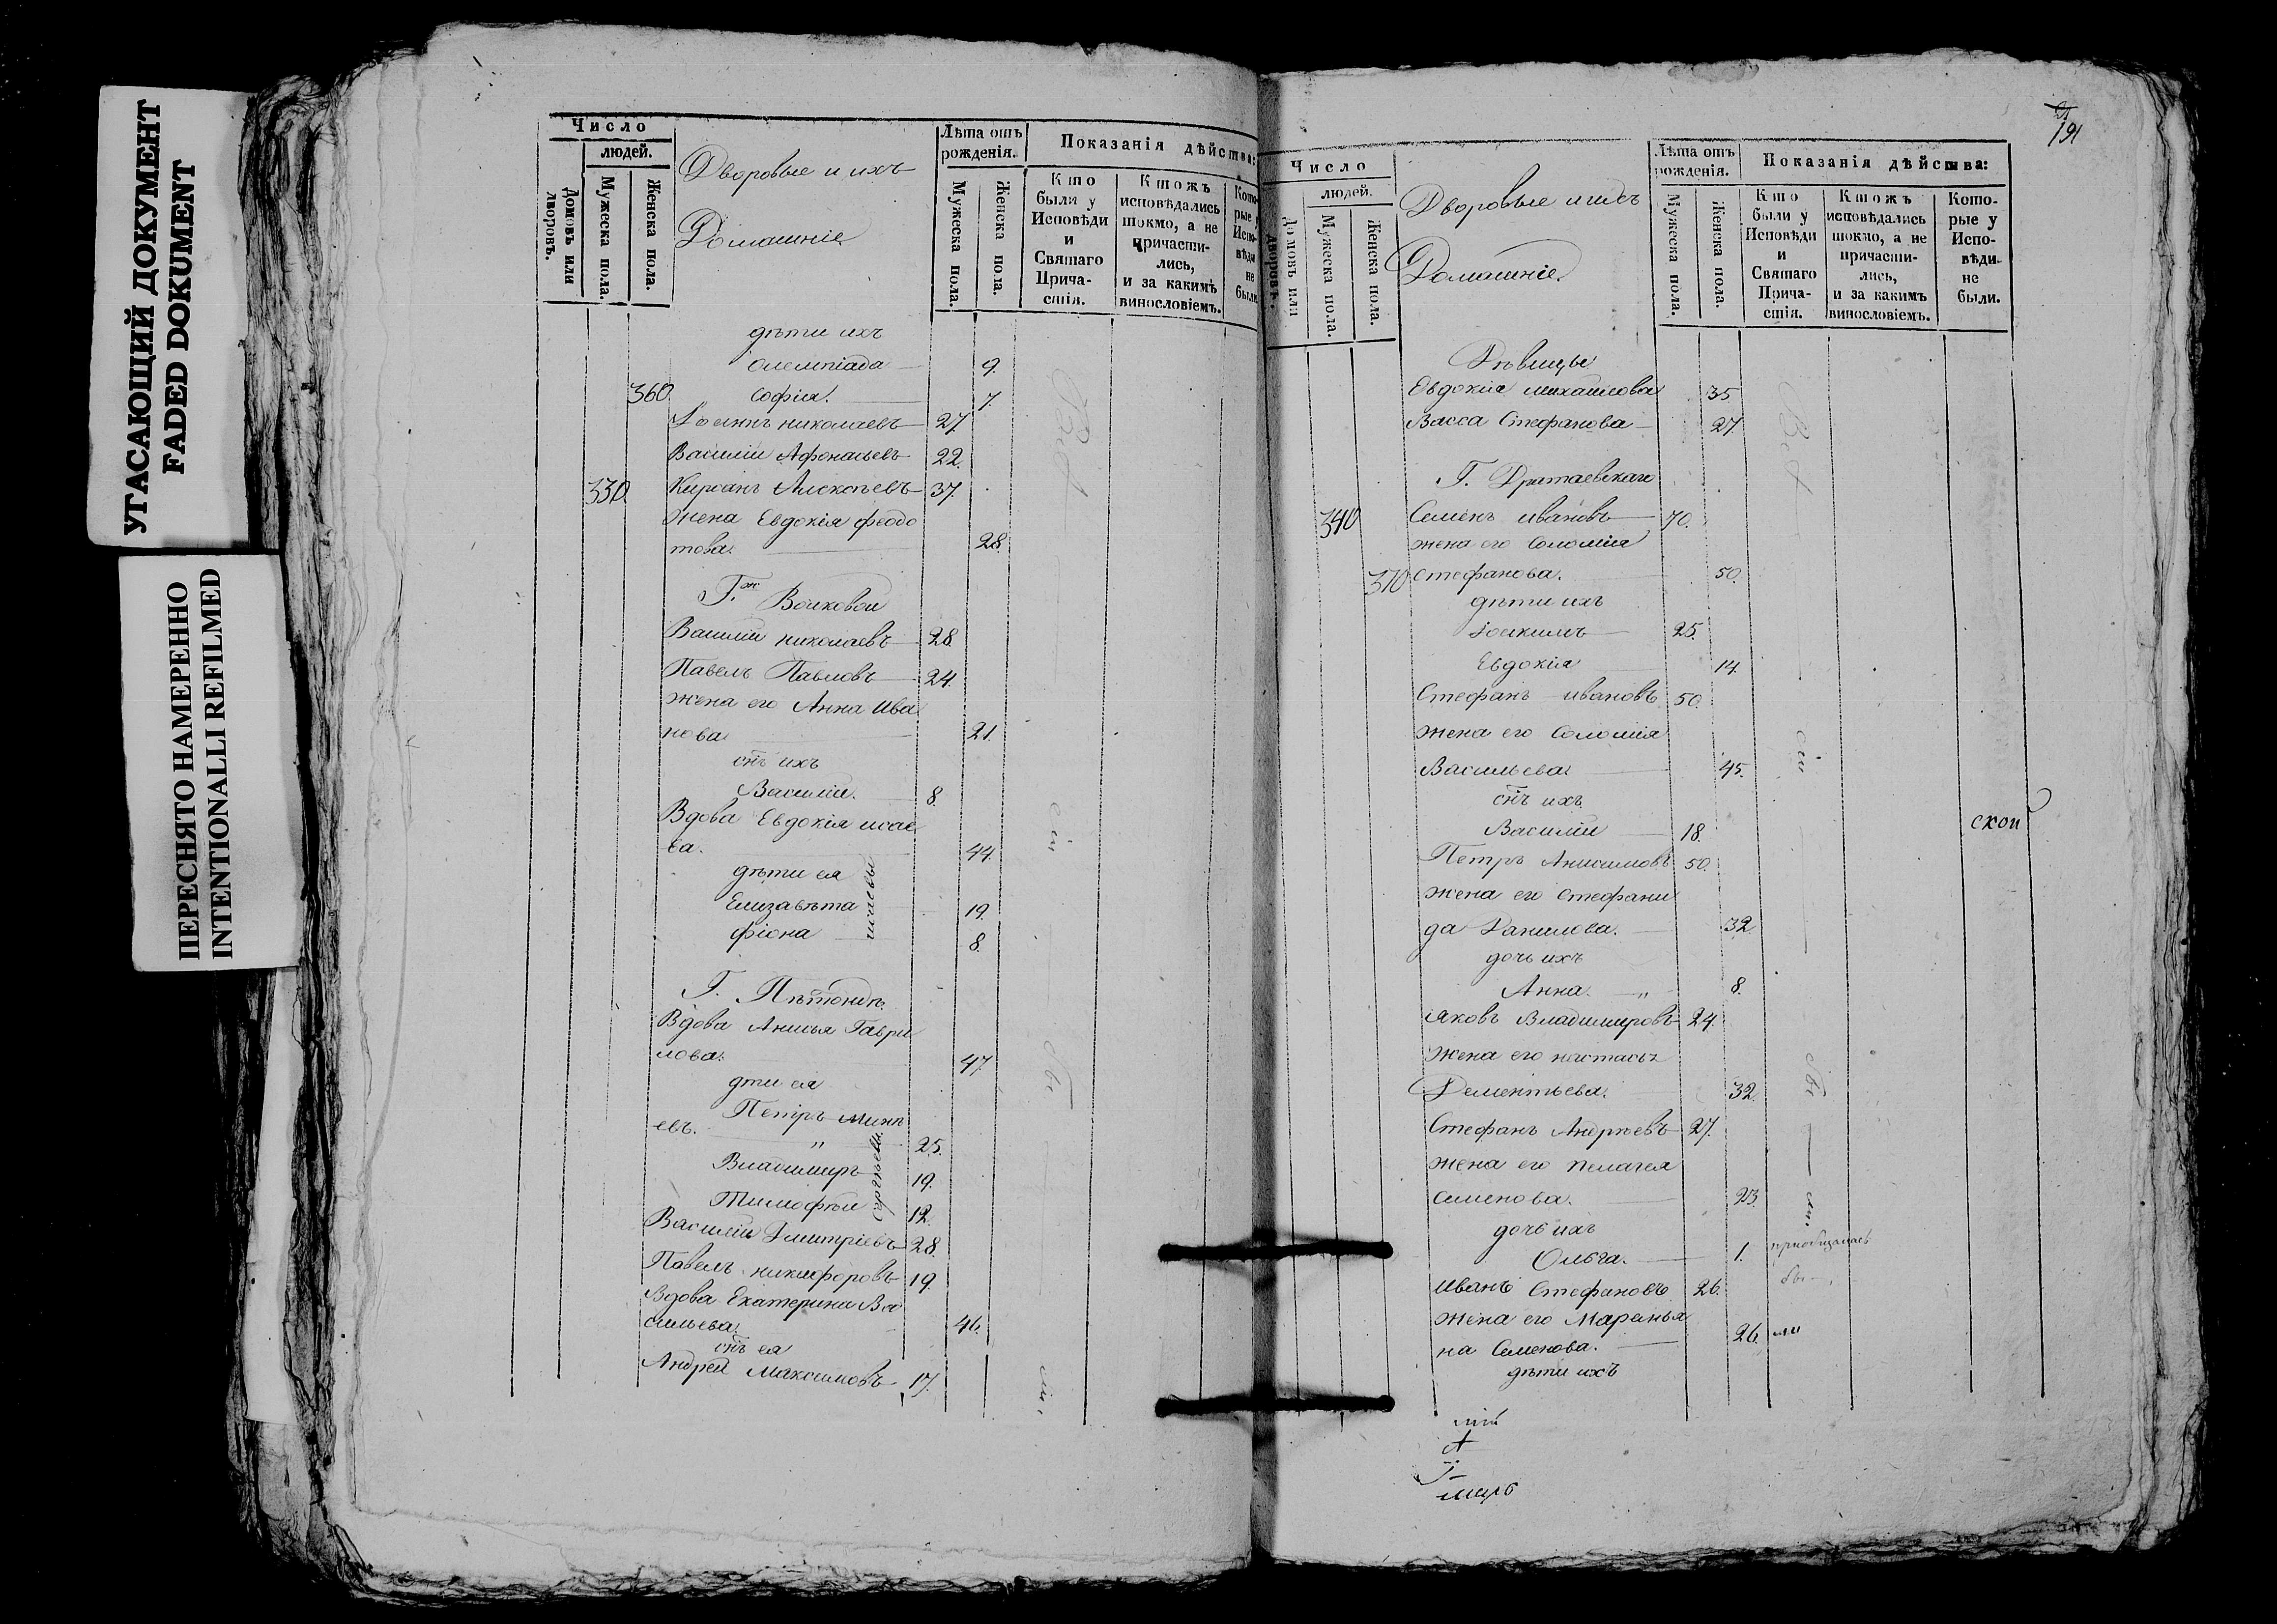 УГАСАЮЩИЙ ДОКУМЕНТ
FADED DOKUMENT
ПЕРЕСНЯТО НАМЕРЕННО
INTENTIONALLI REFILMED
Число
людей.
Домовъ или дворовъ.
Мужеска пола.
Женска пола.
Дворовые и ихъ
Домашніе
Лѣта отъ рожденія.
Мужеска пола.
Женска пола.
Показанія дѣйства:
Кто были у Исповѣди и Святаго Причастія.
Ктожъ исповѣдались токмо, а не причастились, и за какимъ винословіемъ.
Которые у Исповѣди не были.
дѣти ихъ
Олемпіада 9.
360 Софія. 7.
Іоаннъ николаевъ 27.
Василій Афонасьевъ 22.
330 Кирсанъ Алексѣевъ 37.
жена Евдокія федо
това. 28
Г.жи Волковой
Василій николаевъ 28.
Павелъ Павловъ 24.
жена его Анна ива
нова 21.
снъ ихъ
Василій. 8.
Вдова Евдокія исае
ва. 44.
дѣти ея
Елизавѣта 19.
фіона 8.
Г.
Вдова Анисья Гаври
лова. 47
дти ея
Петръ мине
евъ. " 25.
Владимиръ 19.
Тимофѣй 12.
Сергѣевы
Василій Дмитріевъ 28.
Павелъ никифоровъ 19.
Вдова Екатерина Ва
сильева. 46.
снъ ея
Андрей Максимовъ 17.
191
Число
людей.
Домовъ или дворовъ.
Мужеска пола.
Женска пола.
Дворовые и ихъ
Домашніе.
Лѣта отъ рожденія.
Мужеска пола.
Женска пола.
Показанія дѣйства:
Кто были у Исповѣди и Святаго Причастія.
Ктожъ исповѣдались токмо, а не причастились, и за какимъ винословіемъ.
Которые у Исповѣди не были.
Дѣвицы
Евдокія михаилова 35
Васса Стефанова 27.
Г.
340 Семенъ ивановъ 70.
жена его Соломія
370 Стефанова. 50.
дѣти ихъ
Іоакимъ 25.
Евдокія 14.
Стефанъ ивановъ 50.
жена его Соломія
Васильева. 45.
снъ ихъ
Василій 18.
скоп
Петръ Анисимовъ 50.
жена его Стефани
да Данилова. 32.
дочь ихъ
Анна. " 8.
яковъ Владимировъ 24.
жена его настасья
Дементьева. 32.
Стефанъ Андреевъ 27.
жена его пелагея
семенова. 23.
дочь ихъ
Ольга. 1. приобщалась
иванъ Стефановъ 26.
жена его Марья
на Семенова. 26.
дѣти ихъ